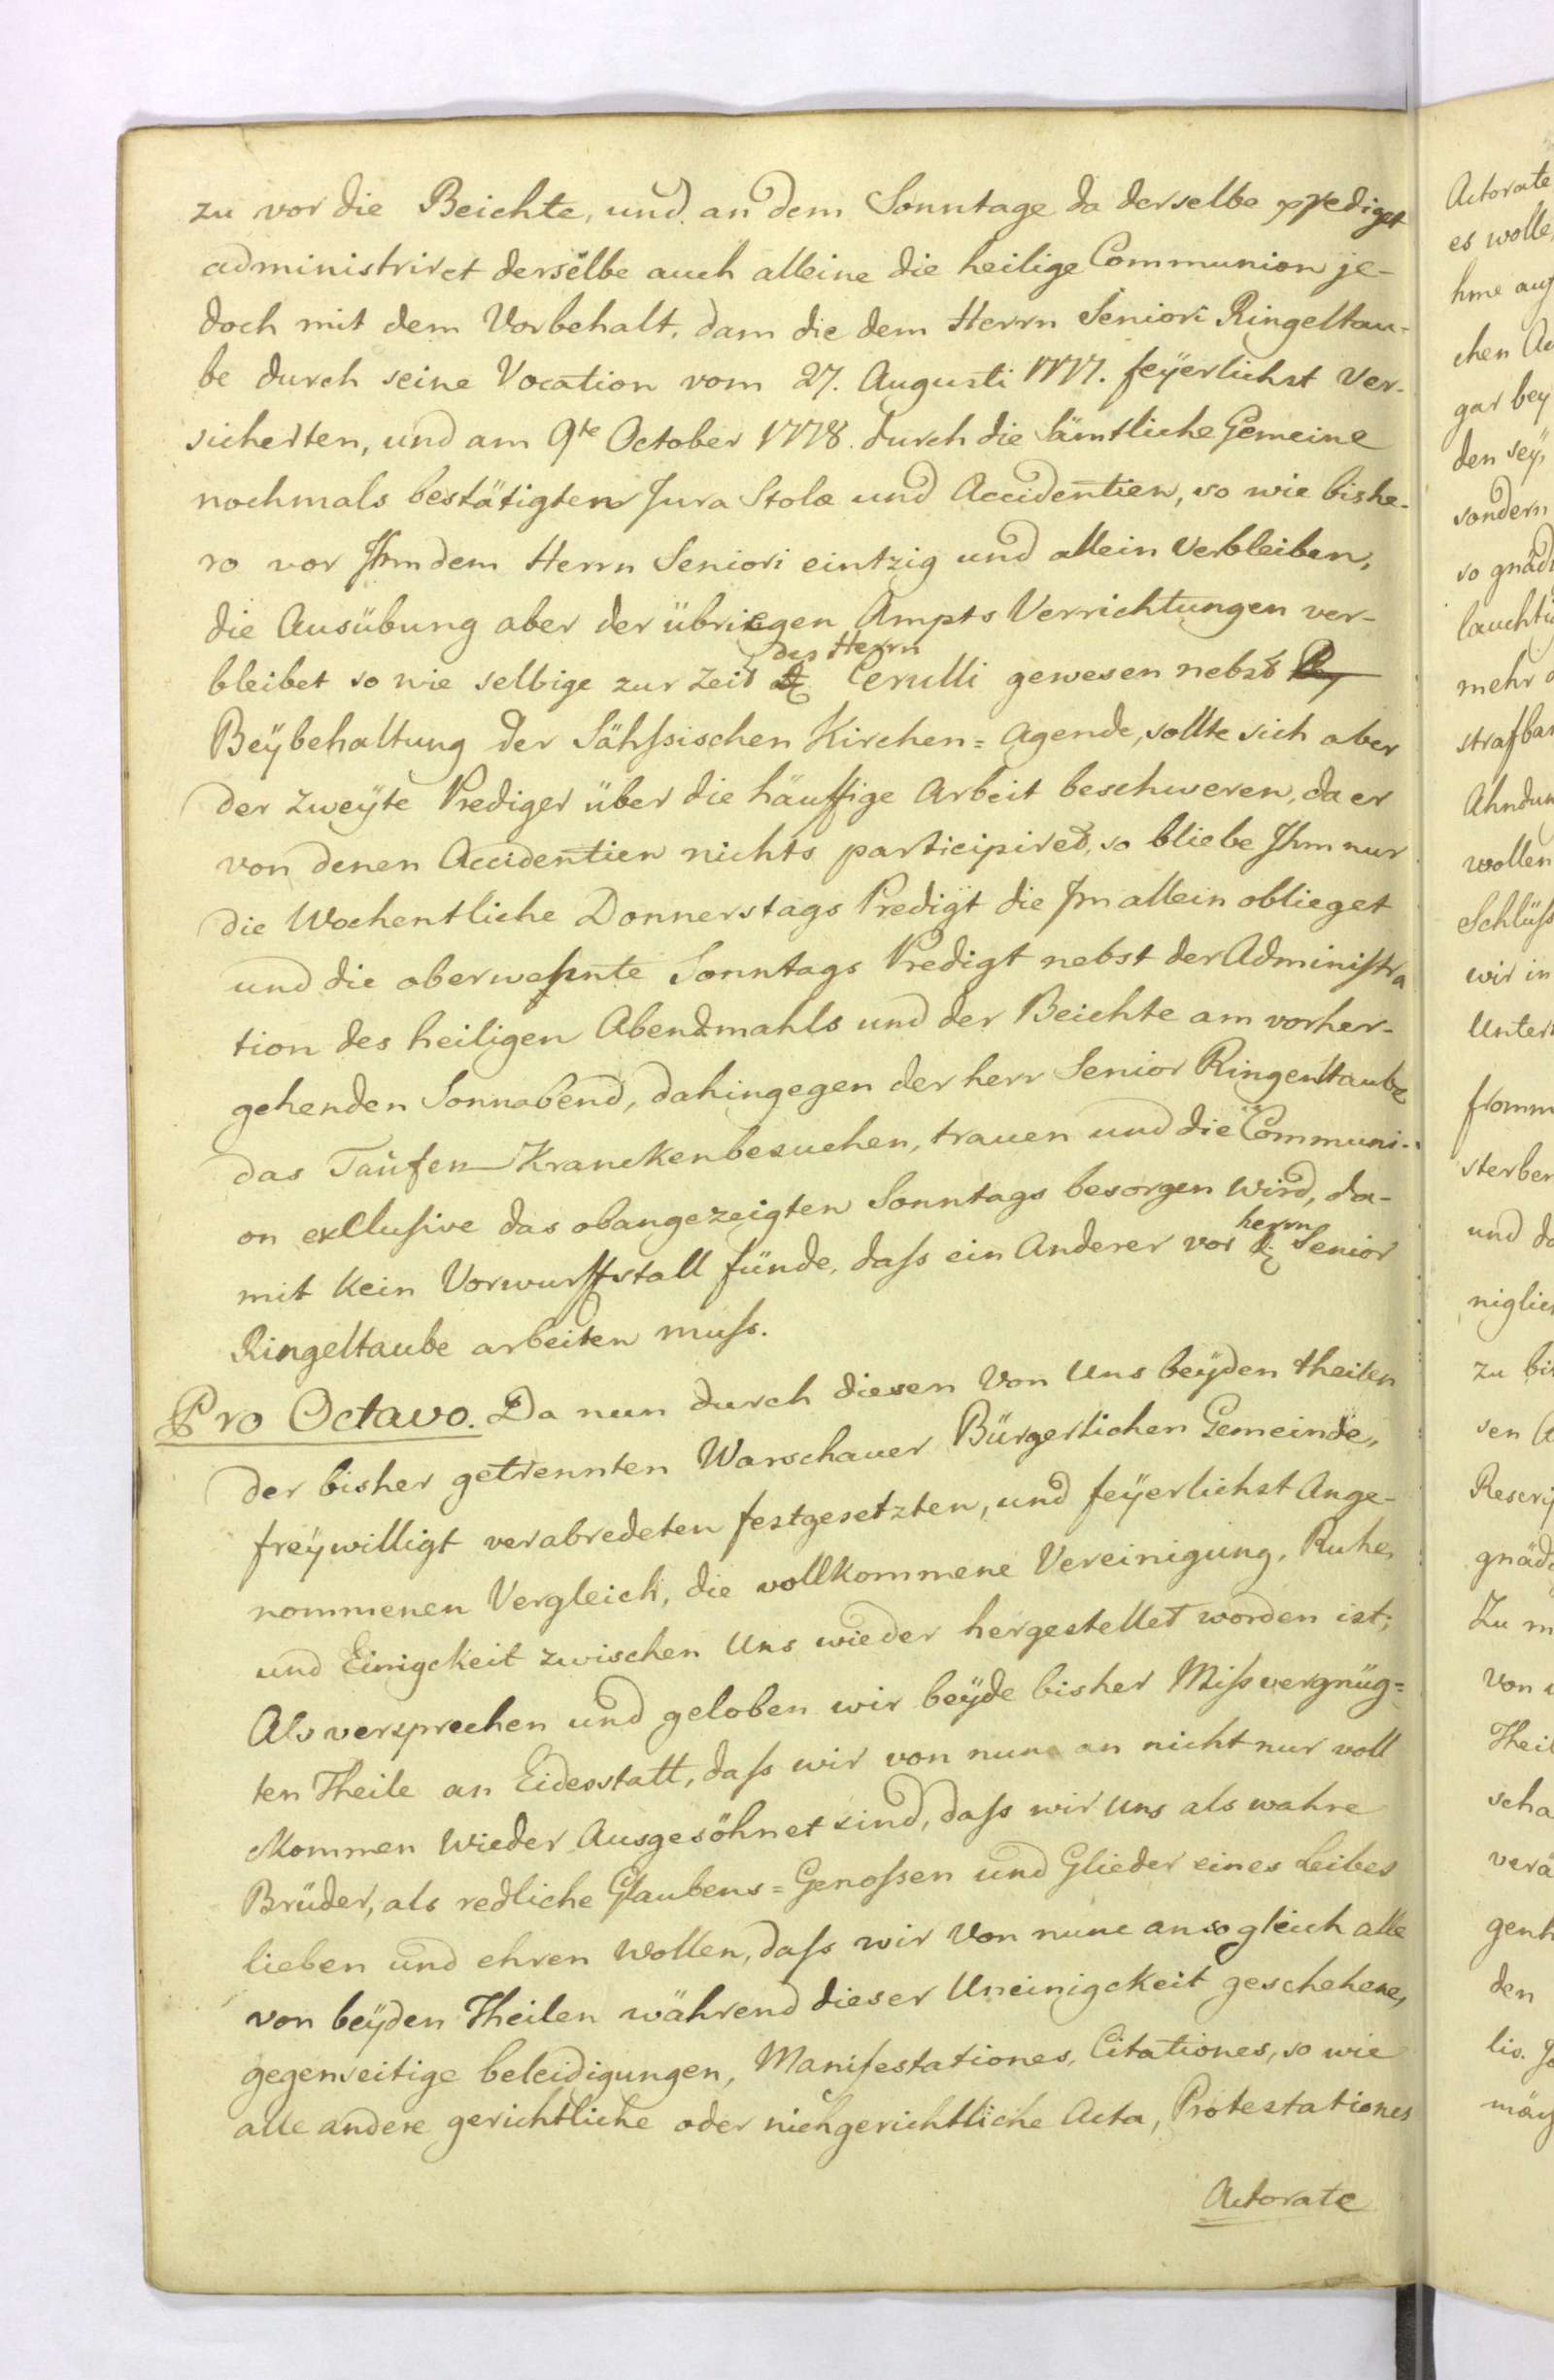 zu vor die Beichte, und an dem Sonntage da derselbe prediget
administriret derselbe auch alleine die heilige Communion je-
doch mit dem Vorbehalt, dam die dem Herrn Seniori Ringeltau-
be durch seine Vocation vom 27. Augusti 1777. feÿerlichst ver-
sicherten, und am 9te October 1778. durch die sämtliche Gemeine
nochmals bestätigten Jura Stolæ und Accidentien, so wie bishe-
ro vor Ihm dem Herrn Seniori eintzig und allein verbleiben,
die Ausübung aber der übrigen Ampts Verrichtungen ver-
des Herrn
bleibet so wie selbige zur Zeit Cerulli gewesen nebst
Beÿbehaltung der Sähssischen Kirchen = Agende, sollte sich aber
der zweÿte Prediger über die häuffige Arbeit beschweren, da er
von denen Accidentien nichts participiret, so bliebe Ihm nur
die Wochentliche Donnerstags Predigt die Im allein oblieget
und die oberwehnte Sonntags Predigt nebst der Administra
tion des heiligen Abendmahls und der Beichte am vorher-
gehenden Sonnabend, dahingegen der herr Senior Ringeltaube
das Taufen Kranckenbesuchen, trauen und die Communi-
on exclusive das obangezeigten Sonntags besorgen wird, da-
herrn
mit kein Vorwurff stall fünde, dass ein Anderer vor Senior
Ringeltaube arbeiten muss.
Pro Octavo. Da nun durch diesen von uns beÿden theilen
der bisher getrennten Warschauer Bürgerlichen Gemeinde,
freÿwilligt verabredeten festgesetzten, und feÿerlichst Ange-
nommenen Vergleich, die vollkommene Vereinigung, Ruhe,
und Einigckeit zwischen Uns wieder hergestellet worden ist;
Als versprechen und geloben wir beÿde bisher Missvergnüg=
ten Theile an Eidesstatt, dass wir von nun an nicht nur voll
kommen wieder Ausgesöhnet sind, dass wir uns als wahre
Brüder, als redliche Glaubens = Genossen und Glieder eines Leibes
lieben und ehren wollen, dass wir von nun an so gleich alle
von beÿden Theilen während dieser Uneinigckeit geschehene,
gegenseitige beleidigungen, Manifestationes, Citationes, so wie
alle andere gerichtliche oder nichgerichtliche Acta, Protestationes
Actorate
Actorate
es wolle
hme auf
chen Ac
gar bey
den seÿ,
sondern
so gnädi
lauchtig
mehr d
strafbar
Ahndun
wollen
Schlüss
wir in
Untert
fromm
sterben
und da
niglich
zu bit
sen A
Rescrip
gnäd
Zu m
von u
Theil
scha
verä
genh
den
lis.
mäg